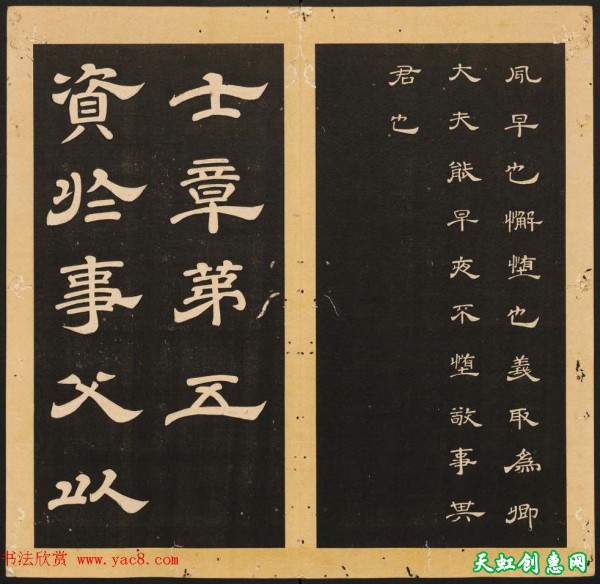 夙早也懈墮也義取為卿
大夫能早夜不墮敬事其
君也
士章第五
資於事父以
书法欣赏 www.yac8.com
天虹创惠网